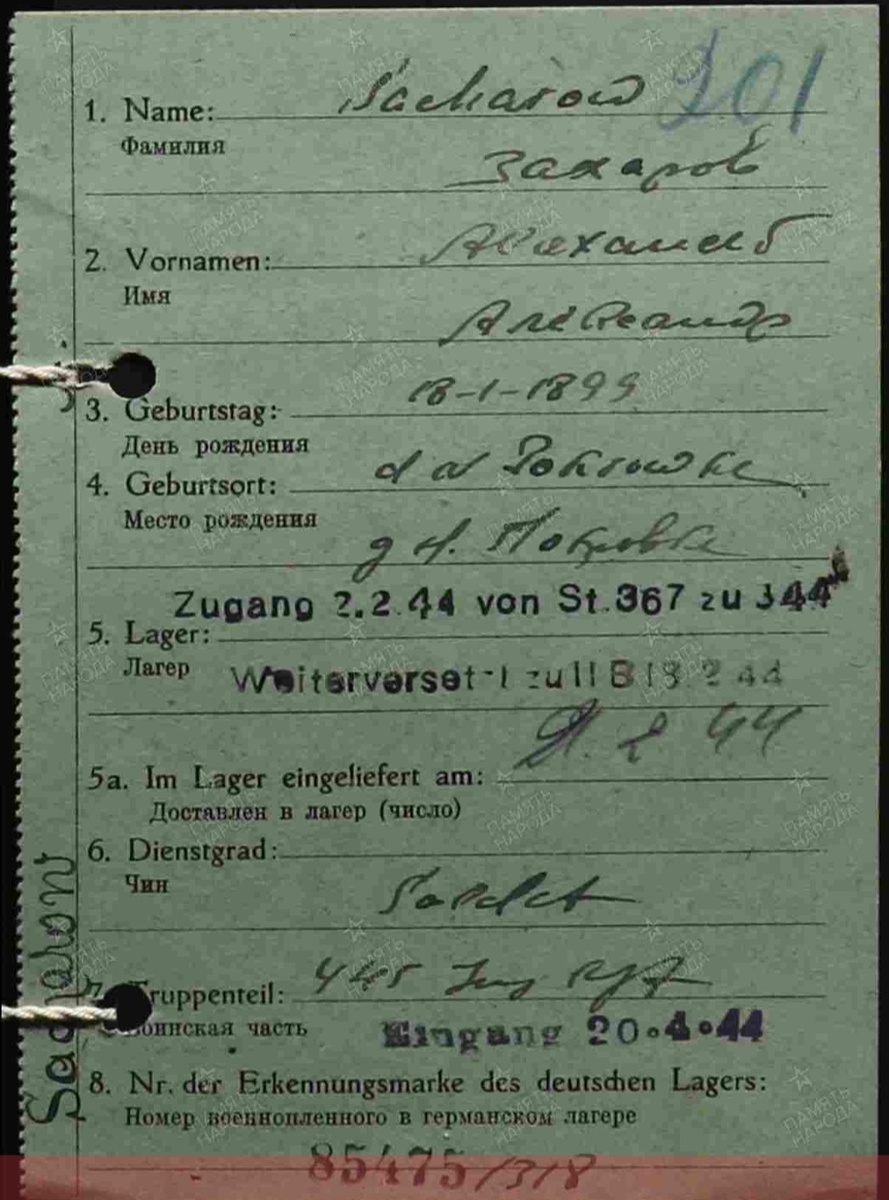 201
1. Name: Sacharow
Фамилия
Захаров
2. Vornamen: Alexander
Имя
Александр
3. Geburtstag: 18-1-1899
День рождения
4. Geburtsort: Pokrowka
Место рождения
д Н. Покровка
Zugang 2.2.44 von St. 367 zu 344
5. Lager:
Лагер
zu II B 18 2 44
2 44
5a. Im Lager eingeliefert am:
Доставлен в лагер (число)
6. Dienstgrad:
Чин
Soldat
7. Truppenteil: 445
Воинская часть
Eingang 20.4.44
8. Nr. der Erkennungsmarke des deutschen Lagers:
Номер военнопленного в германском лагере
85475/318
Sacharow
ПАМЯТЬ НАРОДА